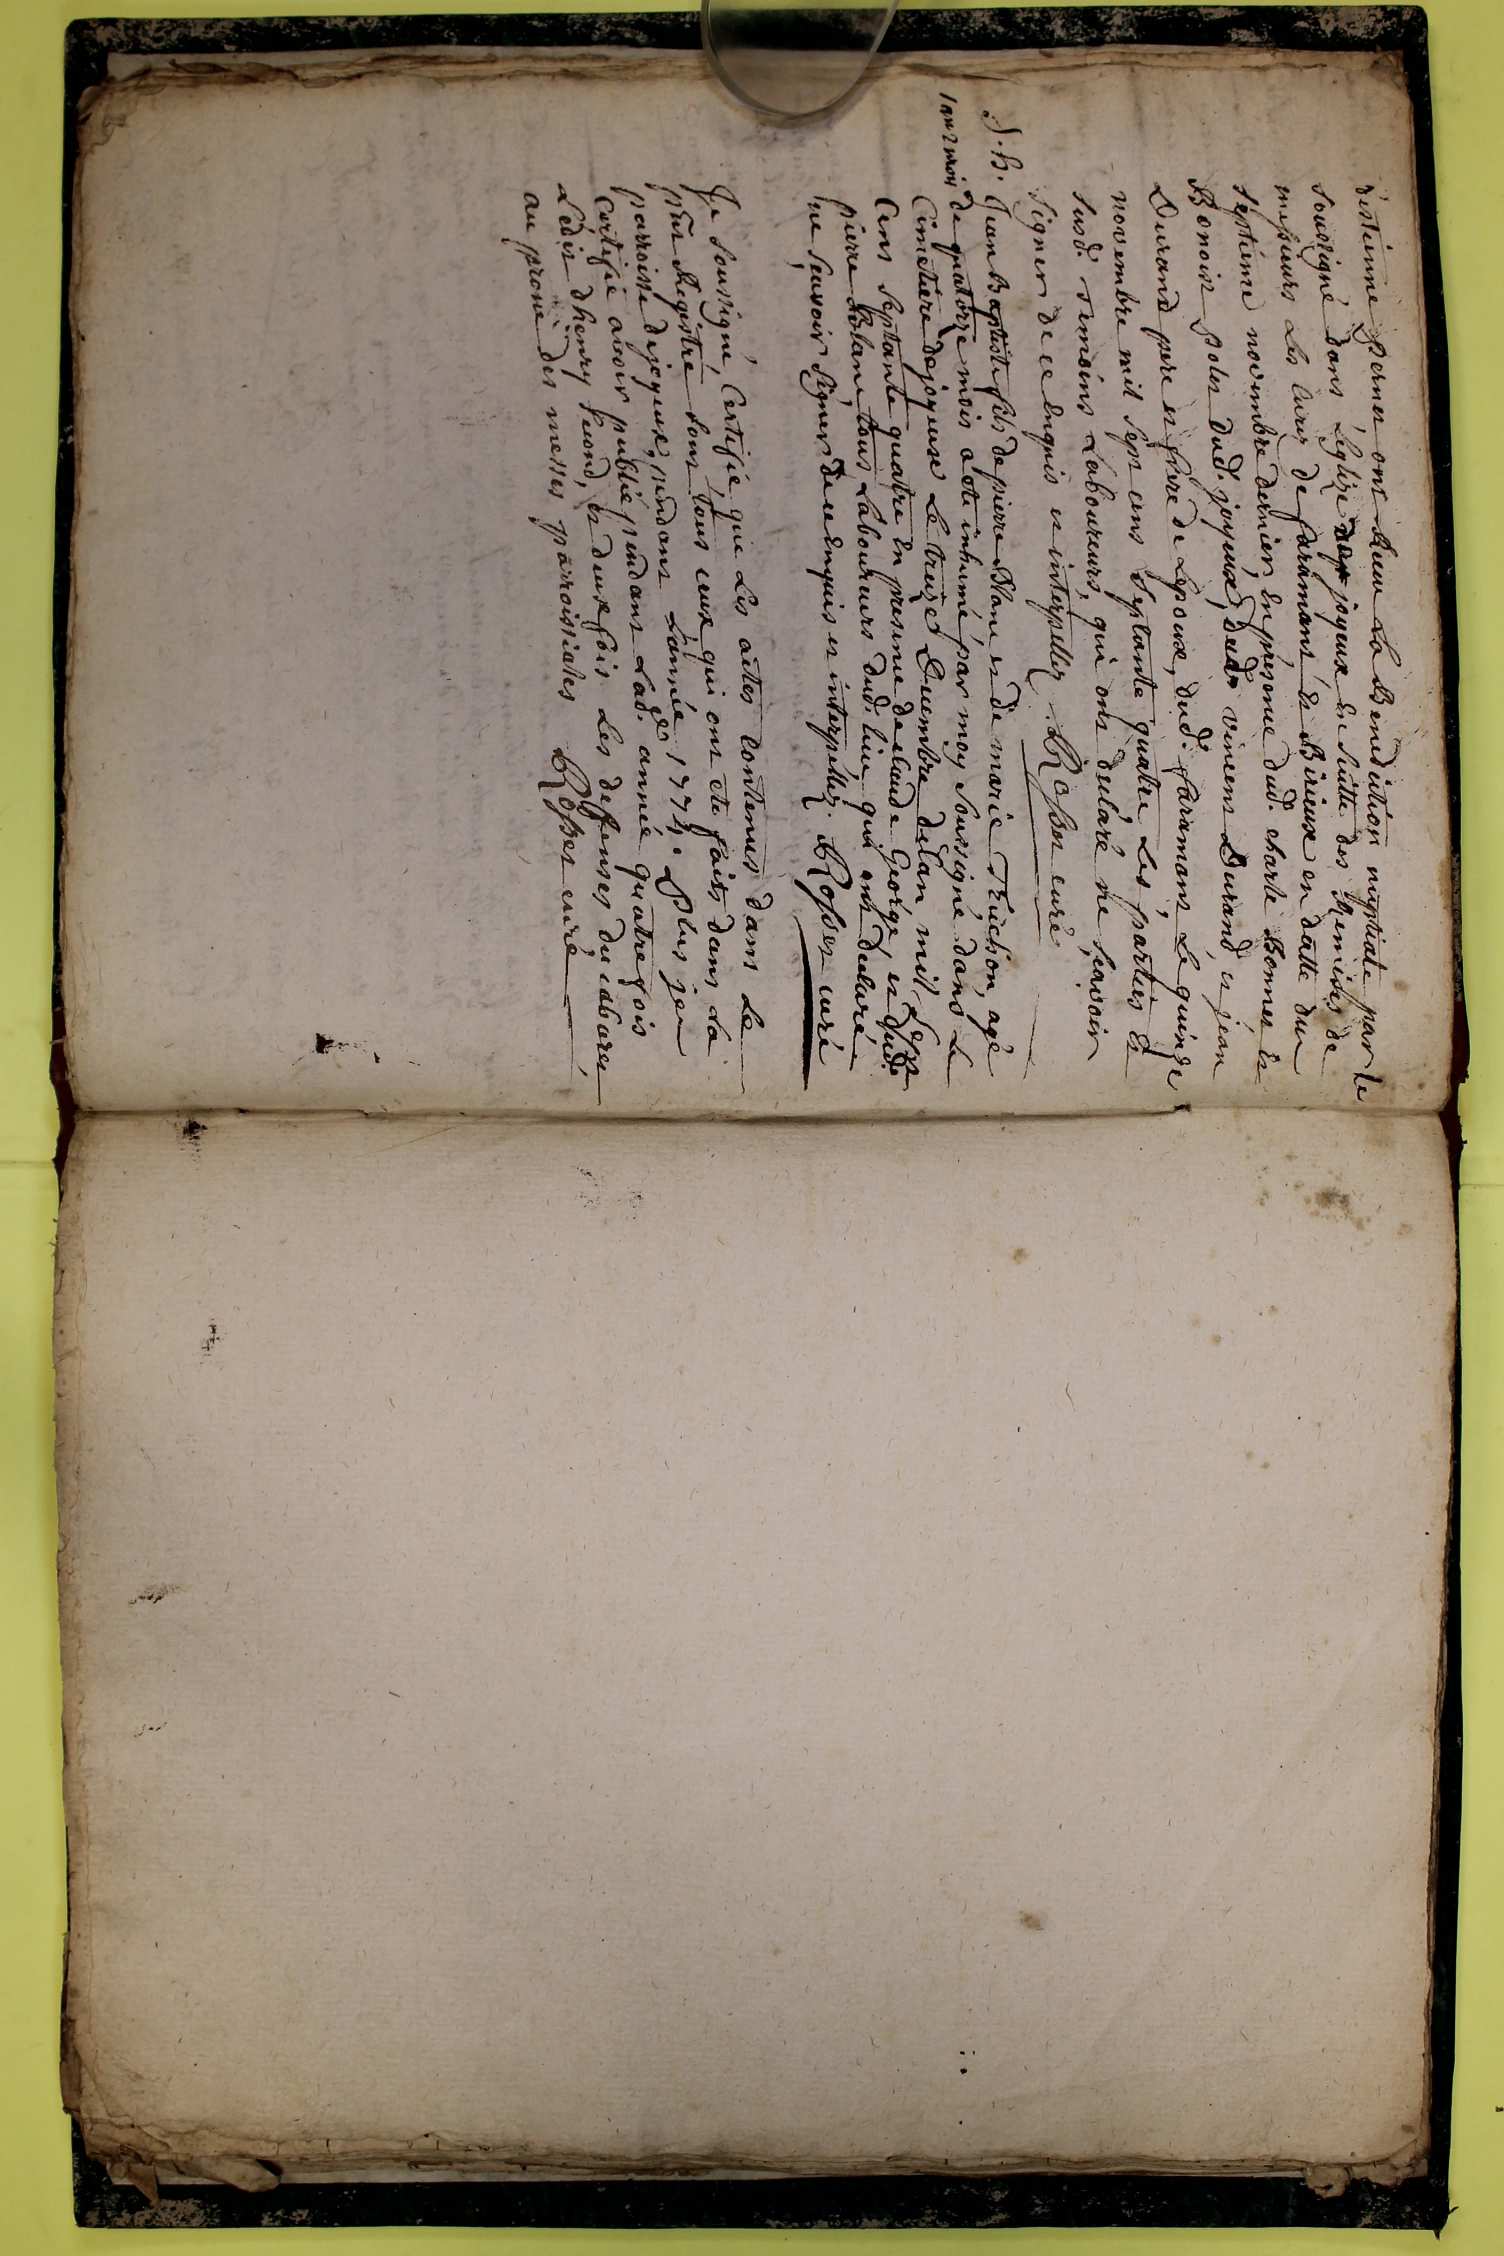 d'estienne Pernet ont Reçu La Benediction nuptiale par le
soussigné dans Leglize de joyeux En suitte des Remises de
messieurs Les Curés de faramans Et Birieux en datte du
septième novembre dernier, En presence dud. charle Bonnet Et
Benoit Polet dud. joyeux, dud. vincent Durand et jean
Durand pere et frere de Lepouse, dud. faramans Le quinze
novembre mil sept cens septante quatre Les parties Et
susd. temoins Laboureurs, qui ont declaré ne sçavoir
signer de ce Enquis et interpellez. Rosset curé
S. h. Jean Baptiste fils de pierre Blanc et de marie Truchon, agé
1 an 2 mois de quatorze mois a ete inhumé par moy soussigné dans Le
Cimetiere de joyeux Le treize Decembre de lan mil sept
Cens septante quatre En presence de claude George, et dud.
pierre Blanc tous Laboureurs dud. lieu qui ont declaré
ne sçavoir signer de ce enquis et interpellez. Rosset curé
Je soussigné, Certifie que Les actes Contenus dans Le
pnt Registre sont tous ceux qui ont ete faits dans La
parroisse de joyeux, pendant Lannée 1774. Plus je
Certifie avoir publié pendant Lad. année quatre fois
Ledit dhenry second, et deux fois Les deffenses du
au prone des messes parroissiales Rosset curé